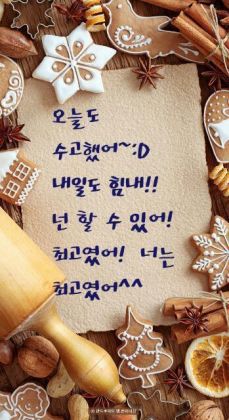 오늘도
수고했어~:D
내일도 힘내!!
넌 할 수 있어!
최고였어! 너는
최고였어^^